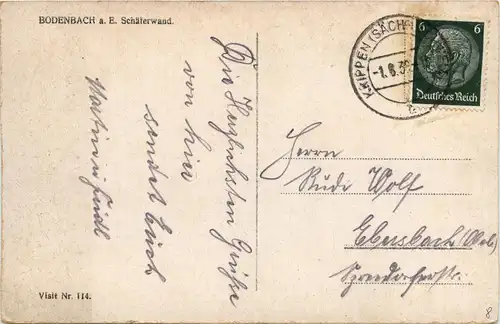 BODENBACH a. E. Schäferwand.
Die Herzlichsten Grüße
von hier
sendet Euch
Visit Nr. 114.
KRIPPEN (SÄCHS
-1.6.3
6 6
Deutsches Reich
Herrn
Rudi Wolf
Ebersbach
8